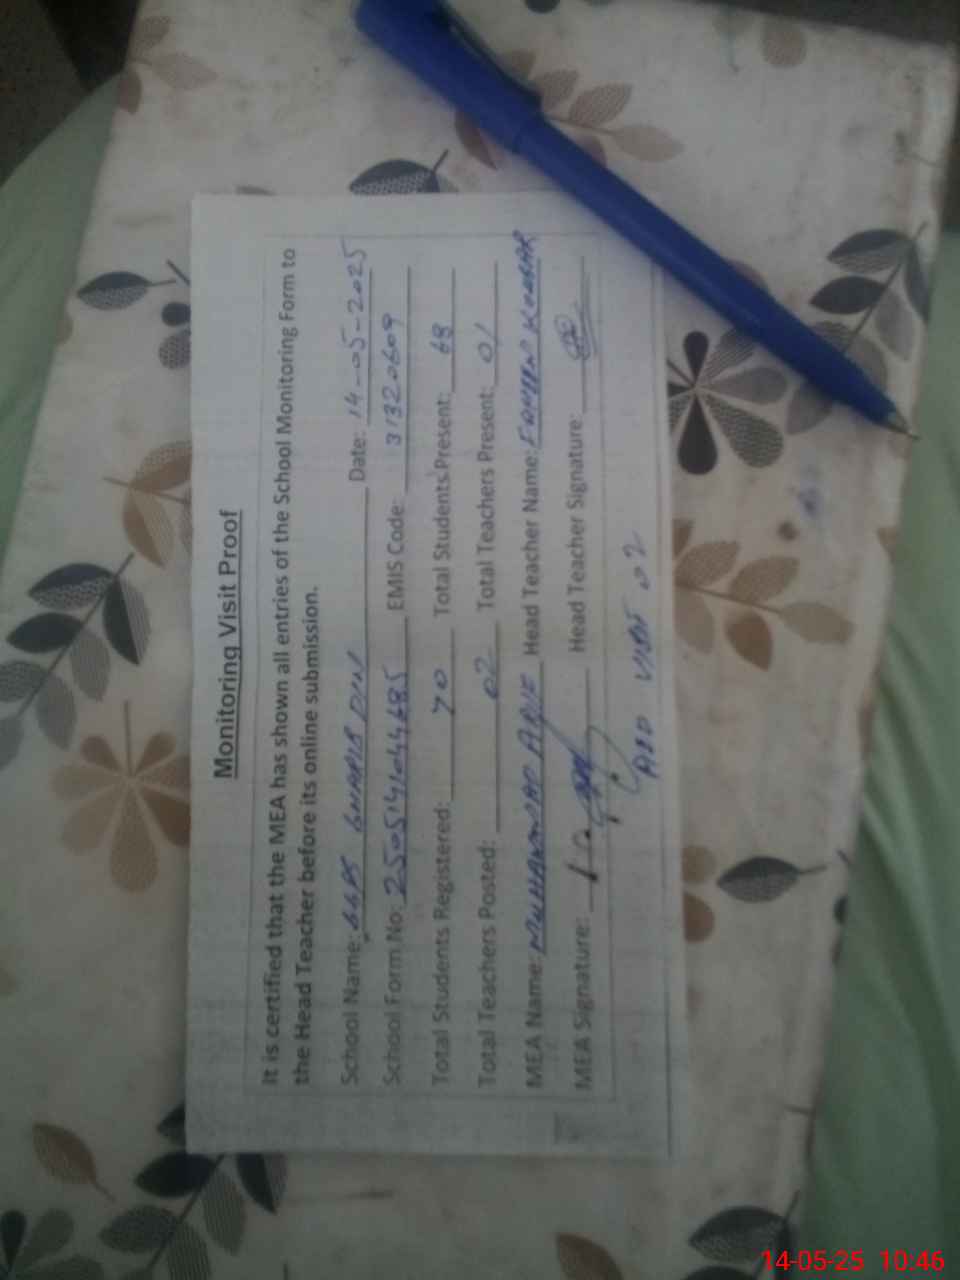 Monitoring Visit Proof
It is certified that the MEA has shown all entries of the School Monitoring Form to
the Head Teacher before its online submission.
School Name: GGPS GHARIB DIN Date: 14-05-2025
School Form No: EMIS Code: 31320609
Total Students Registered: 70 Total Students Present: 68
Total Teachers Posted: 02 Total Teachers Present: 01
MEA Name: MUHAMMAD ARIF Head Teacher Name: KUSAR
MEA Signature: Head Teacher Signature:
VISIT 02
14-05-25 10:46